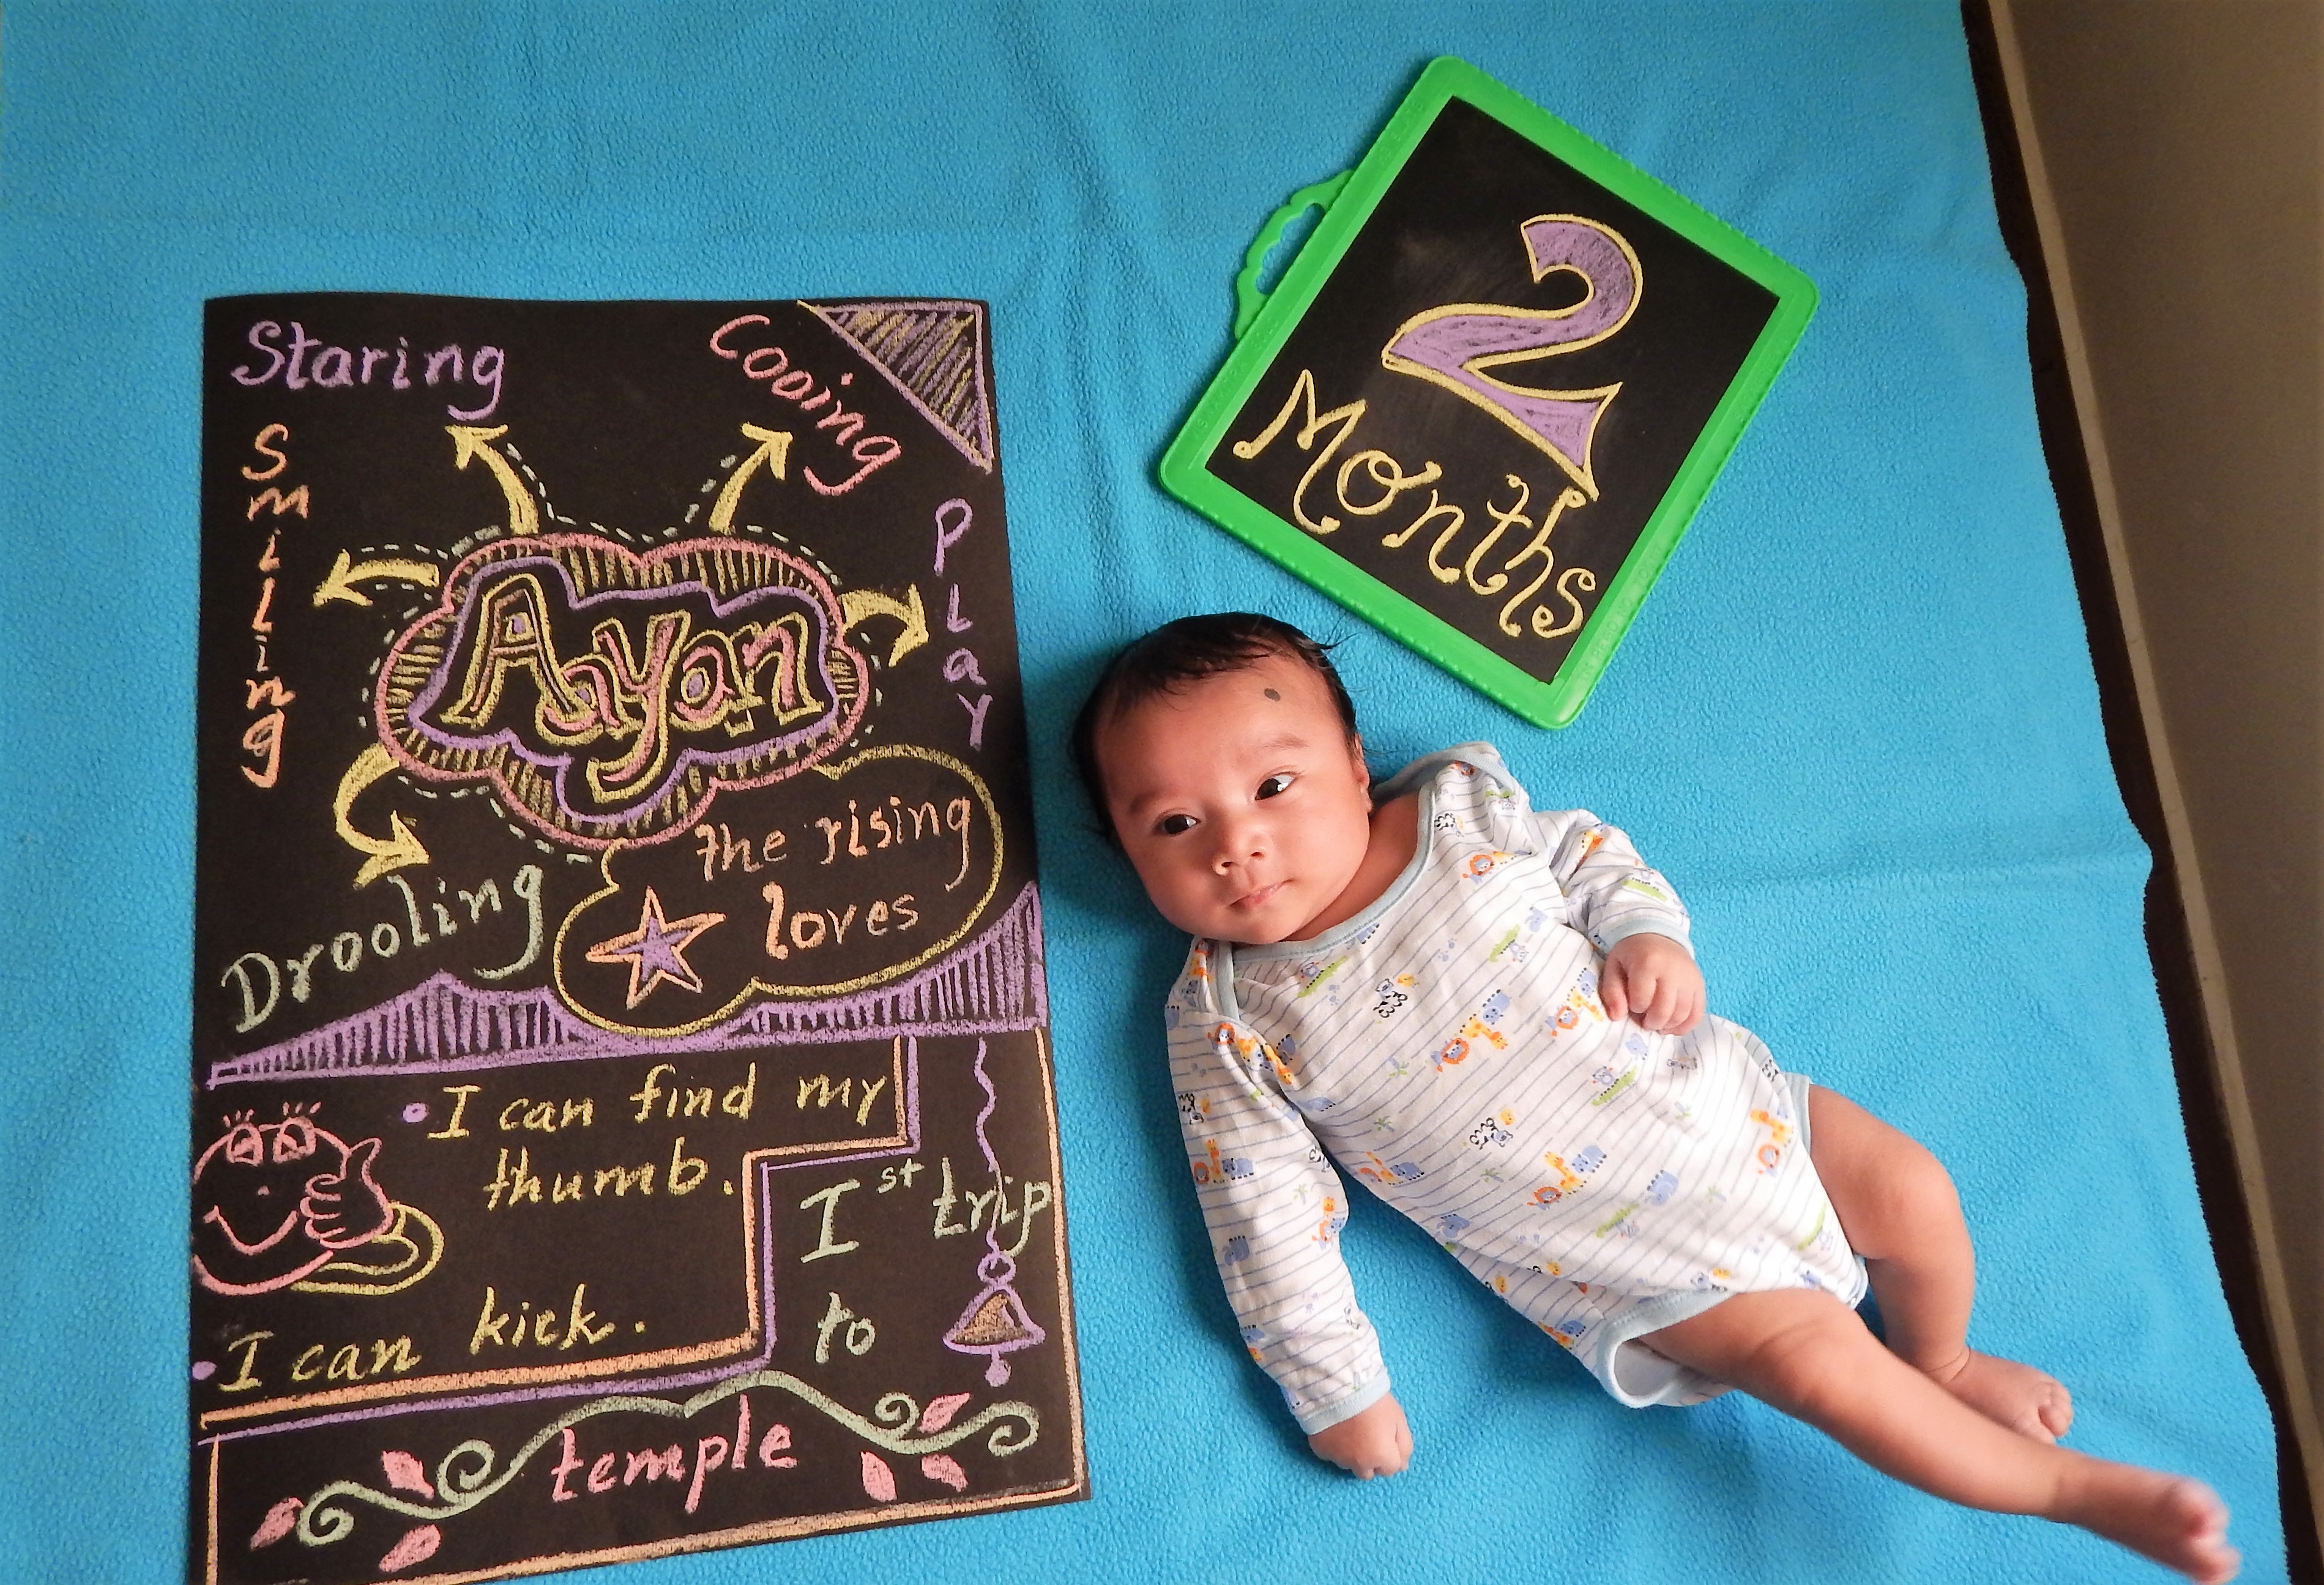 Staring
Cooing
Smiling
Play
Aayan
the rising
loves
Drooling
I can find my
thumb.
I can kick.
1st trip
to
temple
2
Months